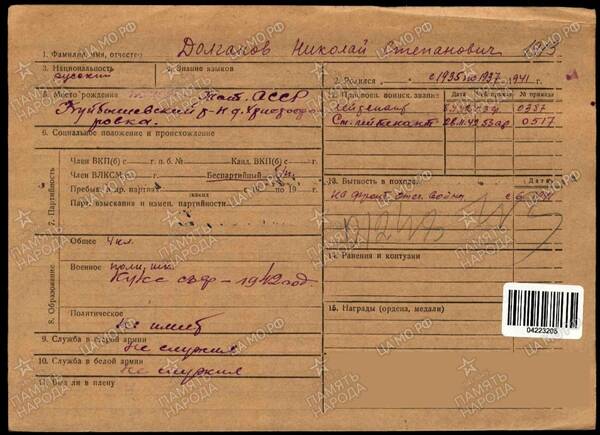 1. Фамилия, имя, отчество Долганов Николай Степанович
3. Национальность русский
4. Знание языков
2. Родился с 1935 по 1937, 1941 г.
5. Место рождения Тат. АССР
Куйбышевский р-н д.
ровка.
6. Социальное положение и происхождение
12. Присвоен. воинск. звание № приказа
Лейтенант 0357
Ст. лейтенант 28.11.42 53 ар 0517
7. Партийность
Член ВКП(б) с — г. п. б. № Канд. ВКП(б) с — г.
Член ВЛКСМ с — г. Беспартийный б/п.
Пребыв. в др. партиях с 19 по 19 — г.
каких
Парт. взыскания и измен. партийности.
13. Бытность в походе Дата
На фронт. отеч. войны с
8. Образование
Общее 4 кл.
Военное полк. шк.
Курс – 1942 год.
Политическое
не имеет
14. Ранения и контузии
15. Награды (ордена, медали)
9. Служба в старой армии не служил
10. Служба в белой армии не служил
11. Был ли в плену
04223205
ПАМЯТЬ НАРОДА
ЦАМО.РФ